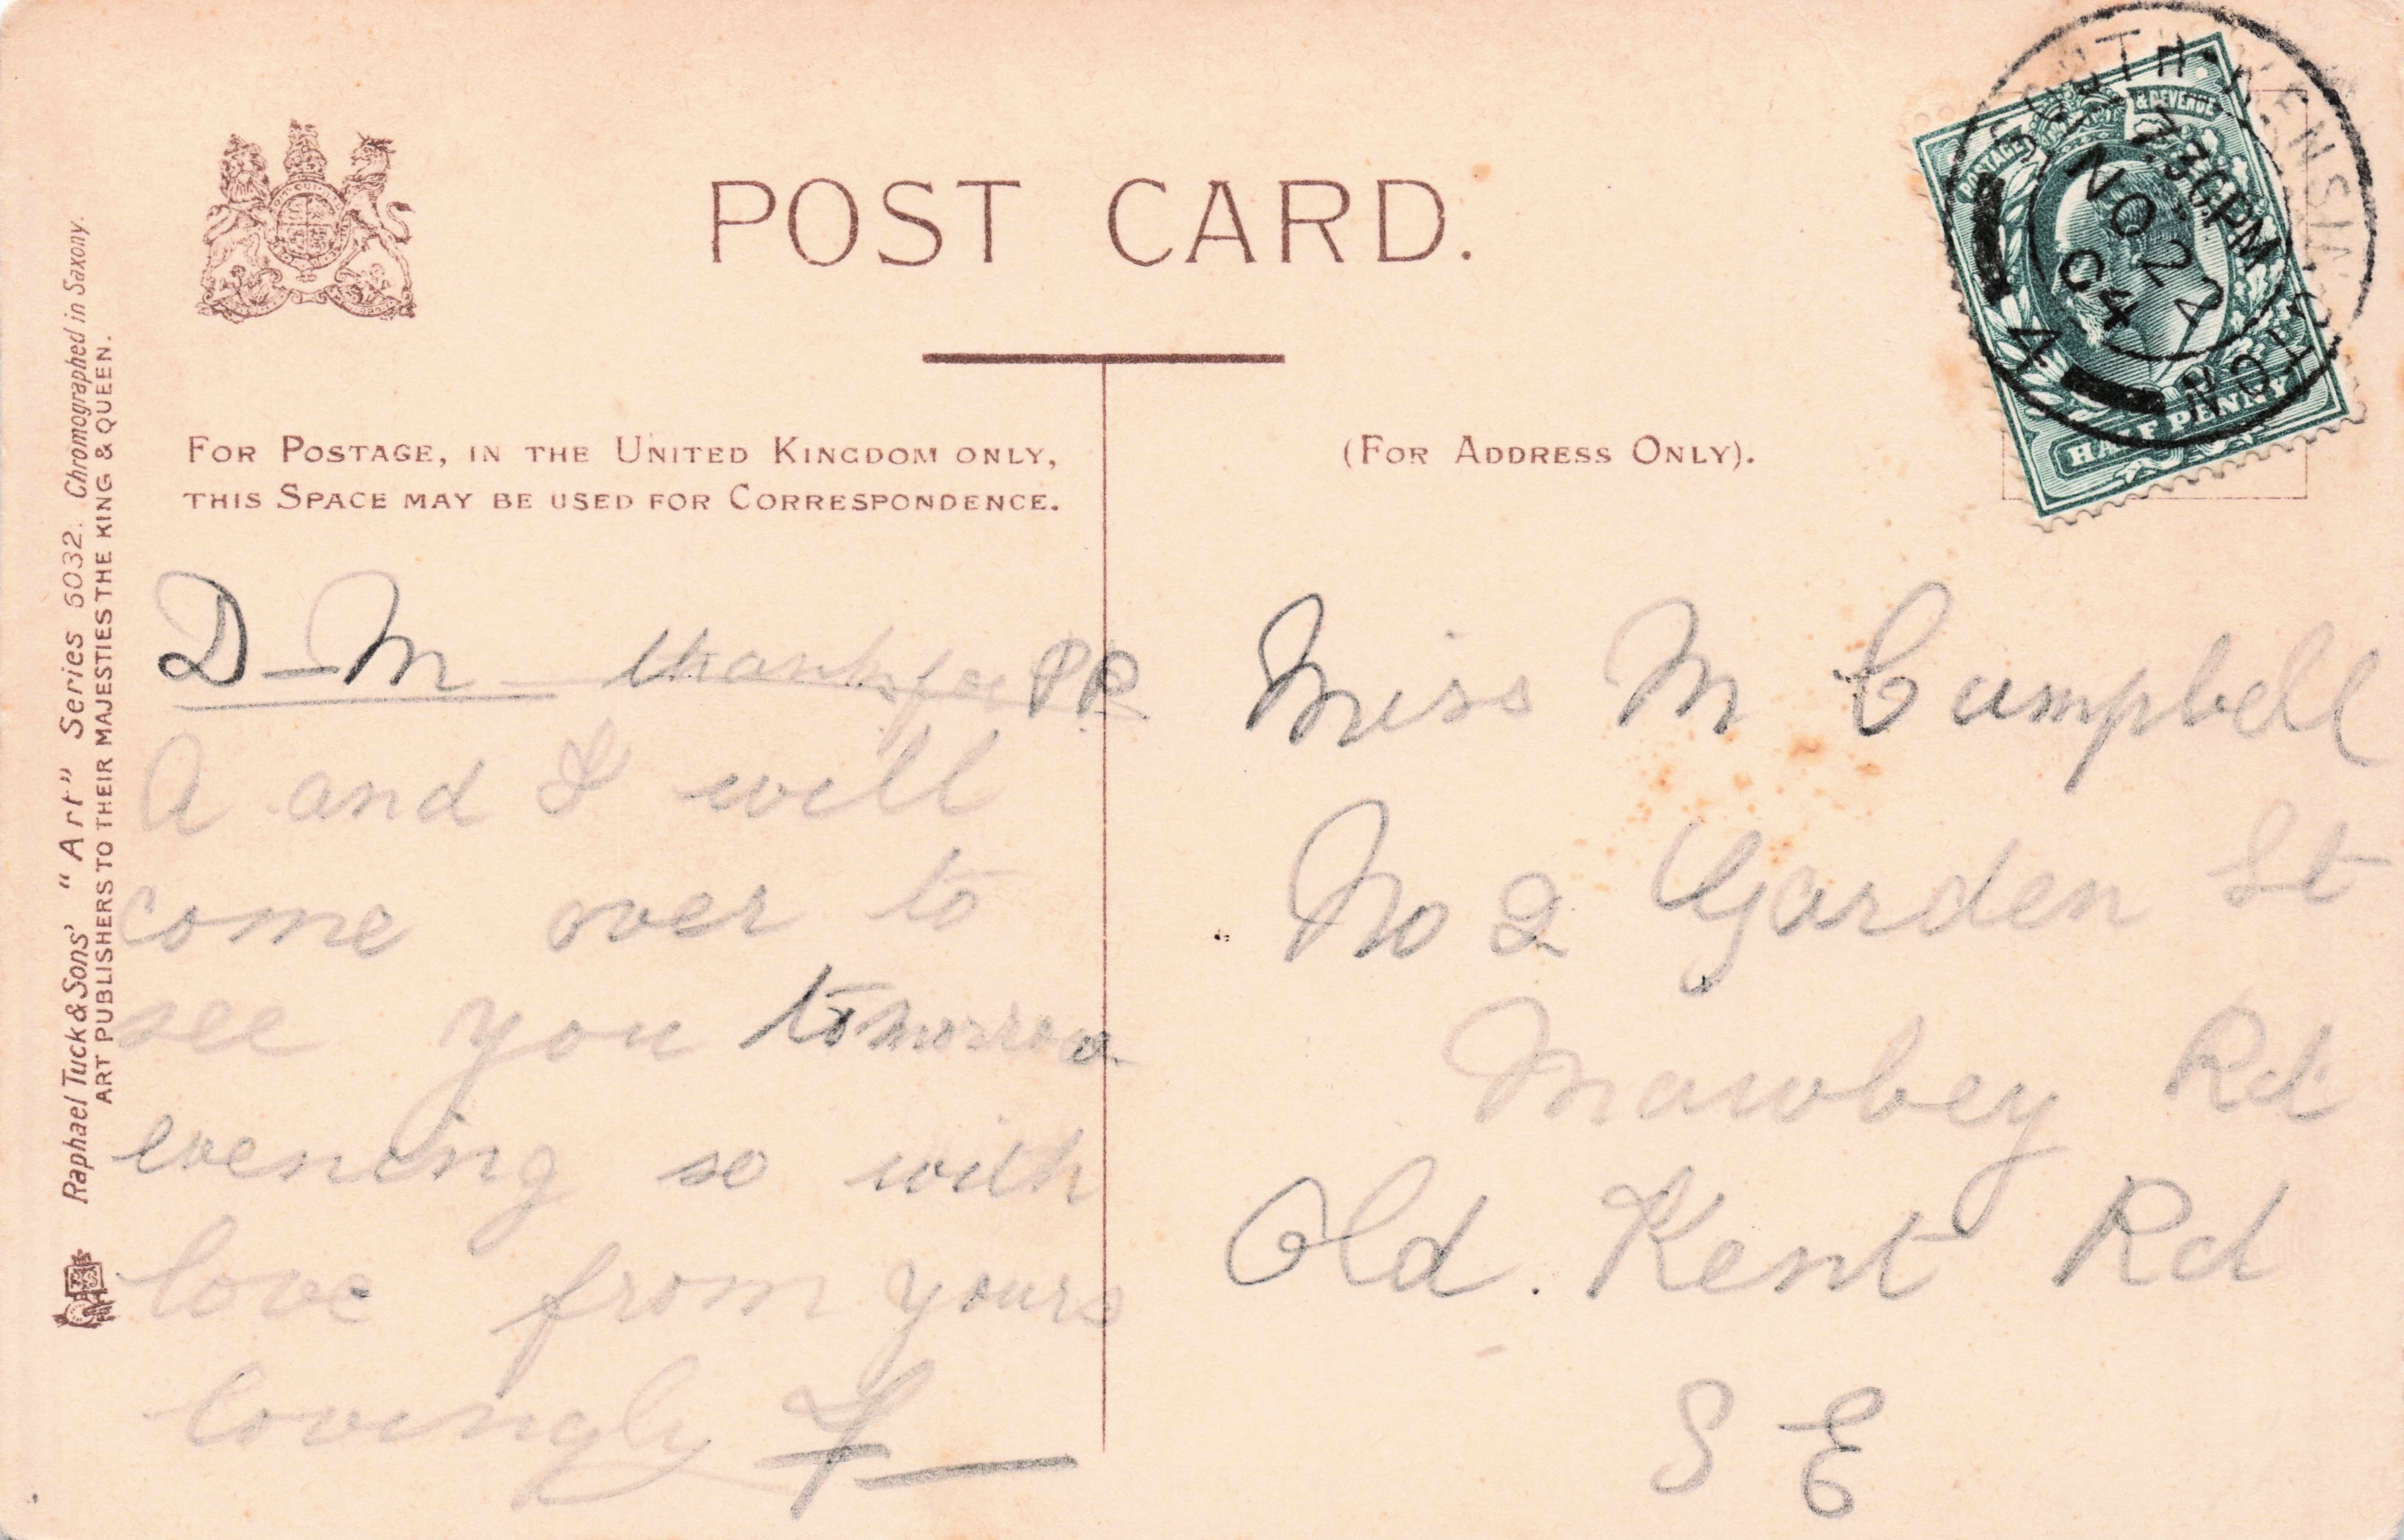 POST CARD.
FOR POSTAGE, IN THE UNITED KINGDOM ONLY,
THIS SPACE MAY BE USED FOR CORRESPONDENCE.
(FOR ADDRESS ONLY).
POSTAGE & REVENUE
HALF PENNY
SOUTH KENSIN
7.30PM
NO 22
04
4
D—M — thanks for PP
A and I will
come over to
see you tomorrow
evening so with
love from yours
lovingly F—
Miss M Campbell
No 2 Garden St
Mawbey Rd
Old. Kent Rd
S E
Raphael Tuck & Sons' "Art" Series 6032. Chromographed in Saxony.
ART PUBLISHERS TO THEIR MAJESTIES THE KING & QUEEN.